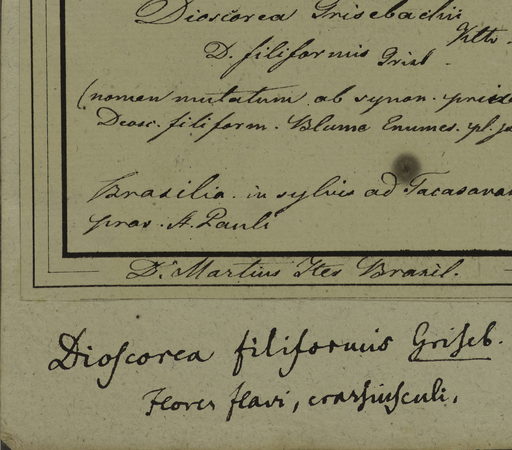 Dioscorea Grisebachii
Kth.
D. filiformis Griseb.
(nomen mutatum ab synon.
Diosc. filiform. Blume Enumer. pl.
Brasilia in sylvis ad
prov. S. Pauli
Dr. Martius Iter Brasil.
Dioscorea filiformis Griseb.
Flores flavi, crassiusculi.